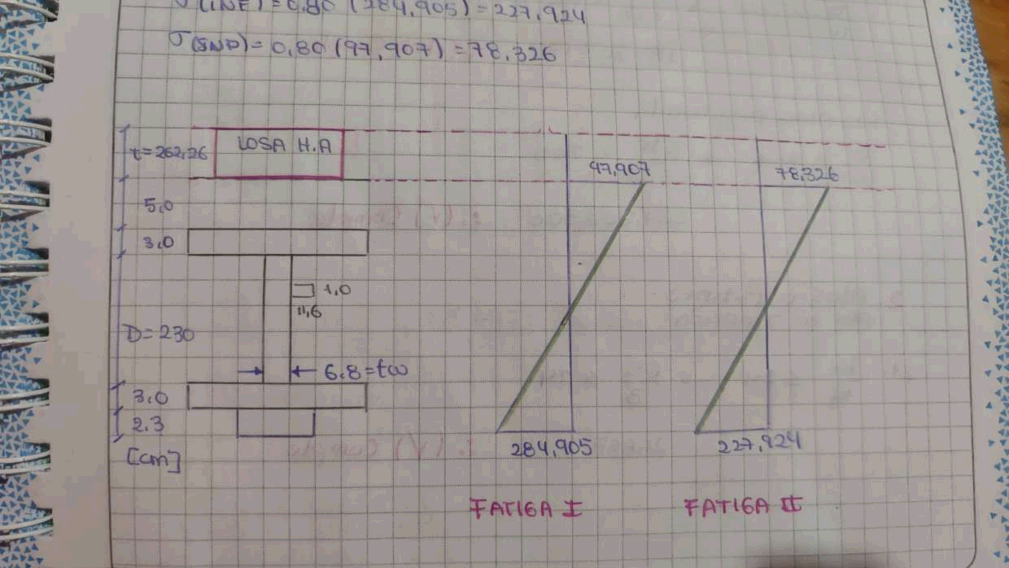 σ(INF)=0,80 (284,905)=227,924
σ(SUP)=0,80 (97,907)=78,326
LOSA H.A
t=262,26
97,907
78,326
5,0
3,0
1,0
11,6
D=230
6.8=tω
3.0
2.3
284,905
227,924
[cm]
FATIGA I
FATIGA II